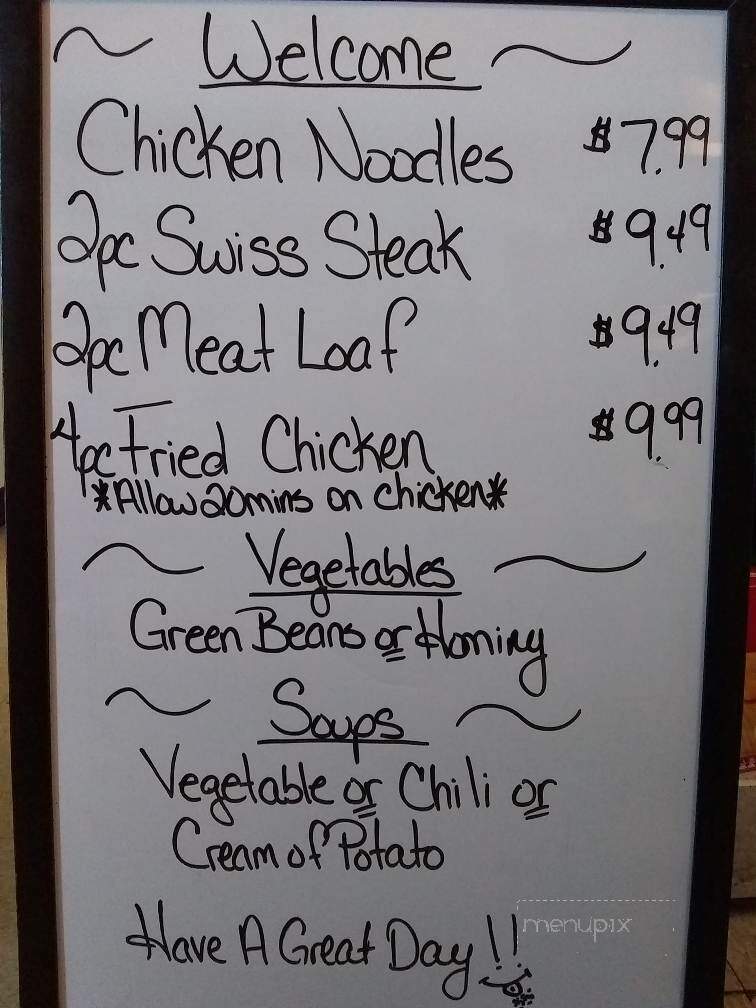 ~ Welcome ~
Chicken Noodles $7.99
2pc Swiss Steak $9.49
2pc Meat Loaf $9.49
4pc Fried Chicken $9.99
*Allow 20mins on chicken*
~ Vegetables ~
Green Beans or Hominy
~ Soups ~
Vegetable or Chili or
Cream of Potato
Have A Great Day!!
menupix